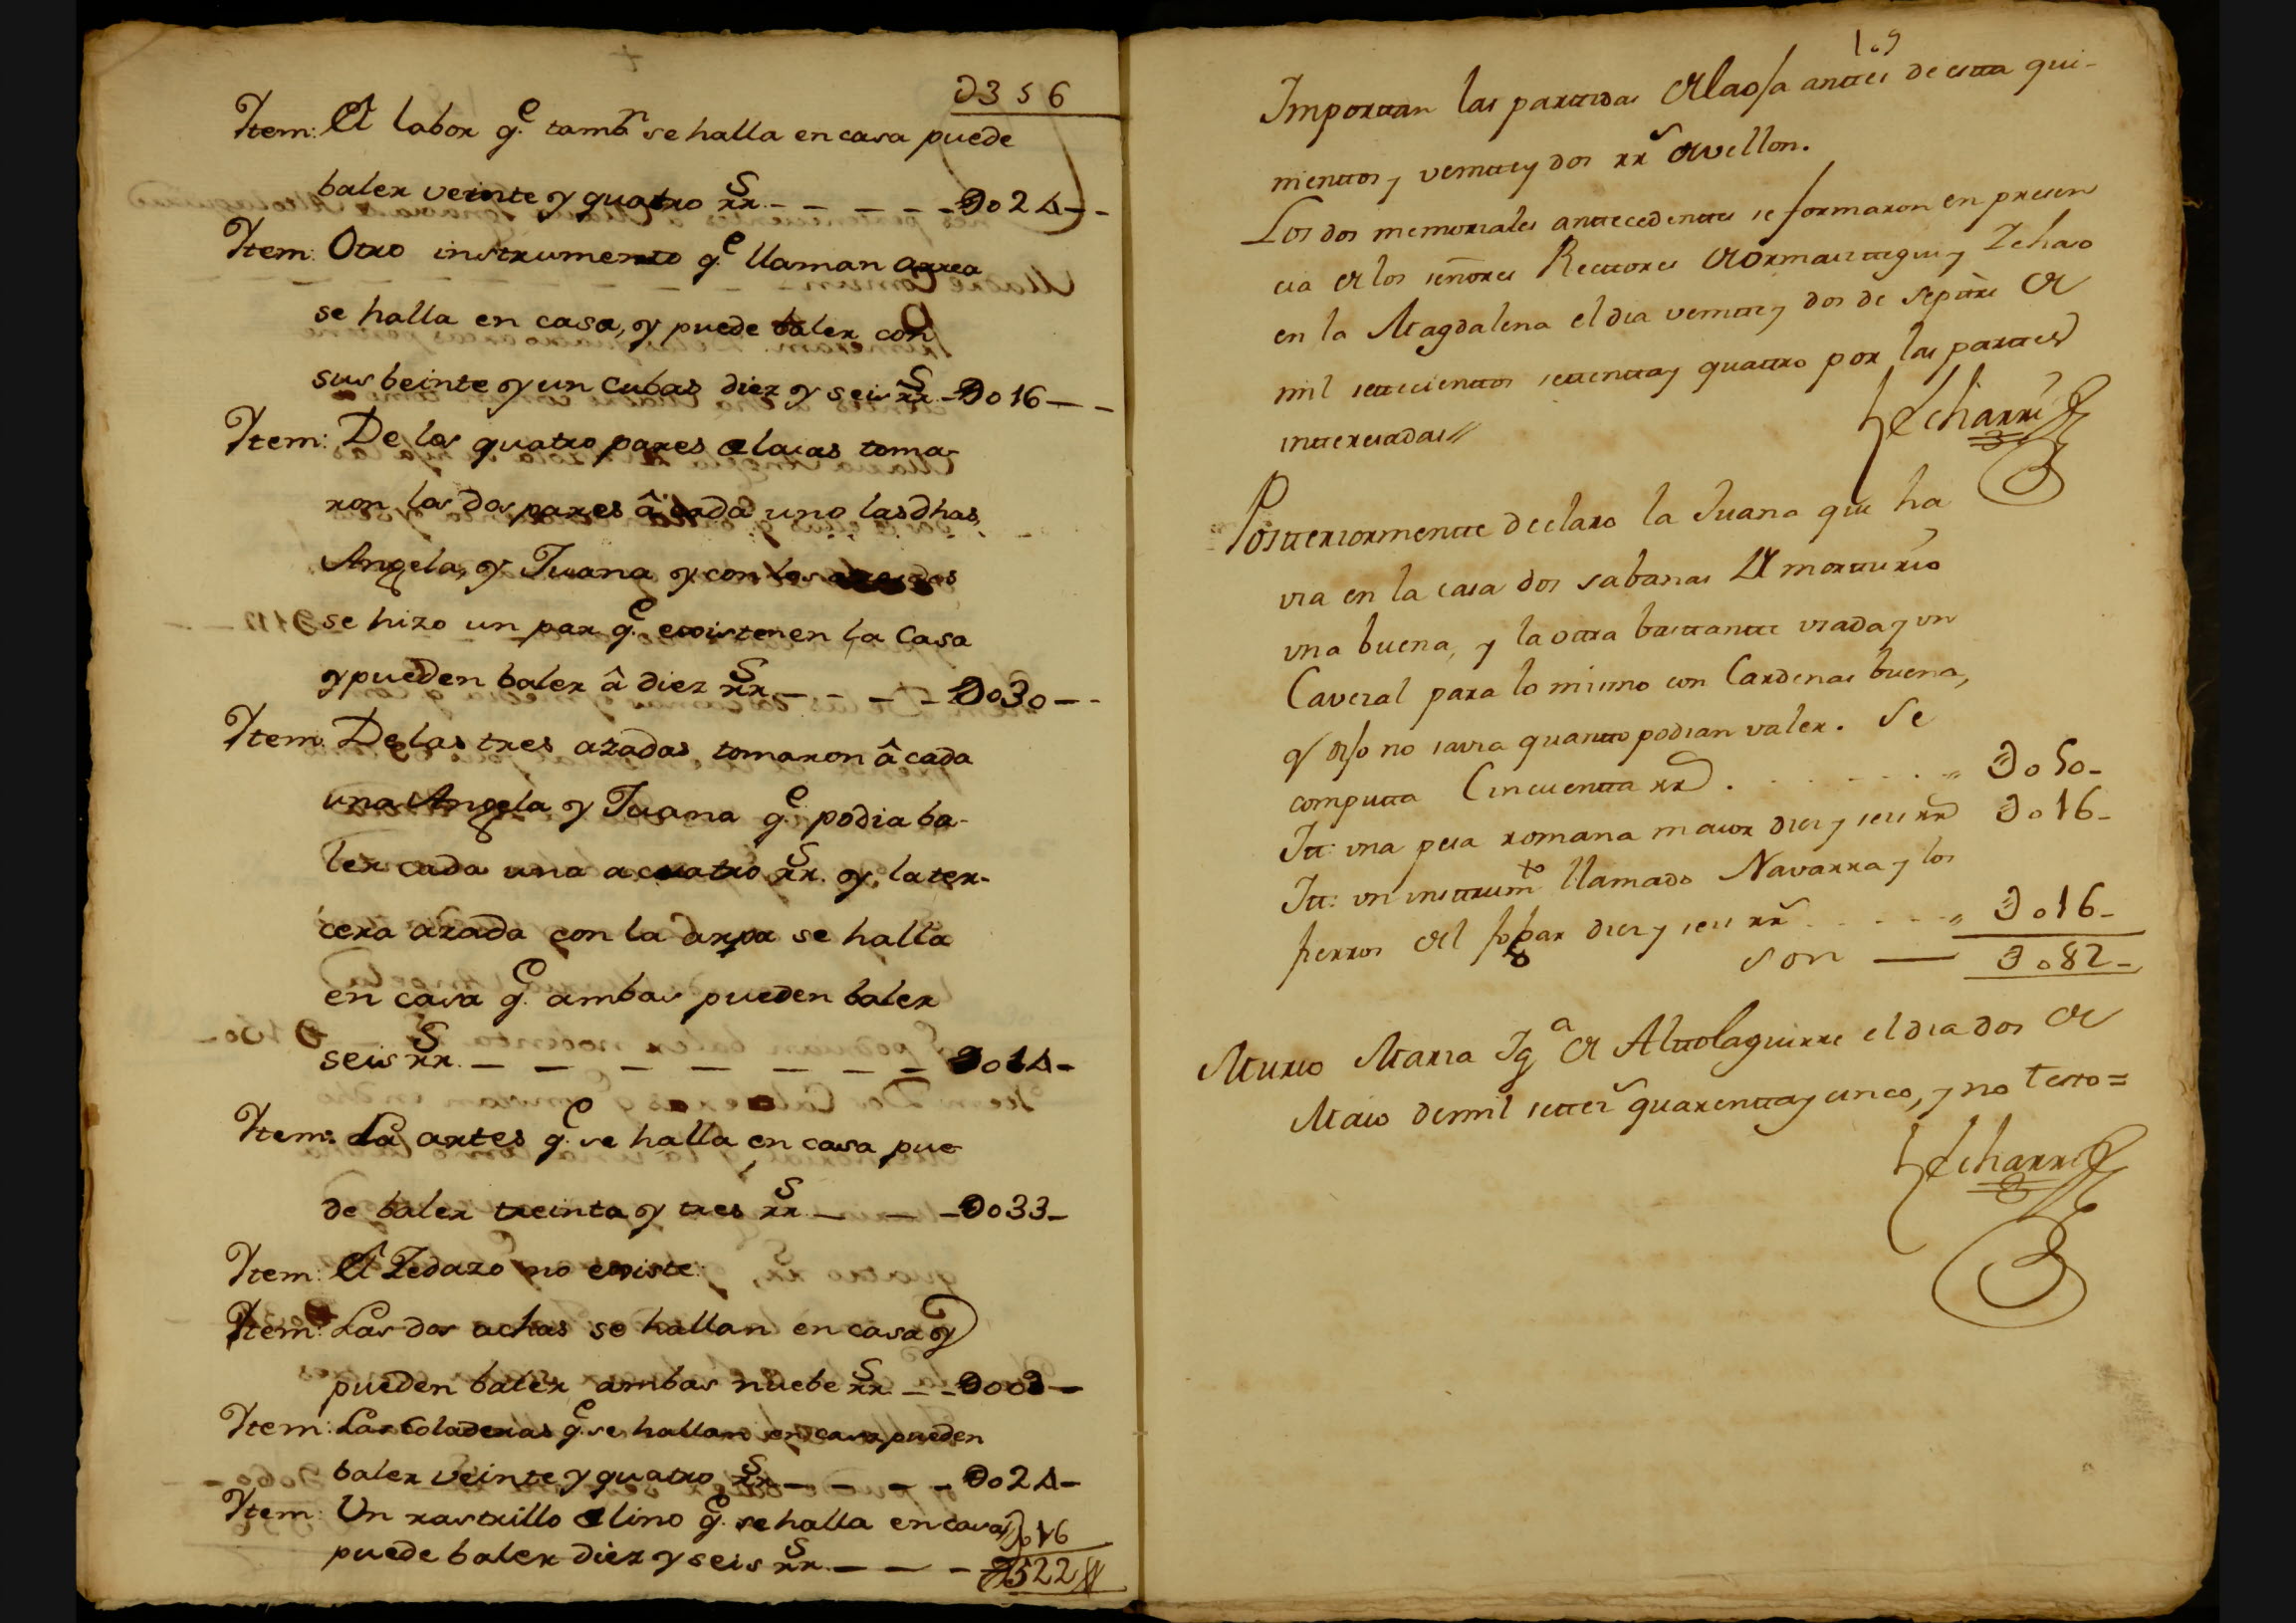 D356
Ytem: El labor q.e tambn se halla en casa puede
baler veinte y quatro rrs. - - - - - D024 - -
Ytem: Otro instrumento q.e llaman arrea
se halla en casa, y puede baler con
sus beinte y un cubas diez y seis rrs. - D016 - -
Ytem: De los quatro pares de laias toma-
ron los dos pares â cada uno las dhas,
Angela, y Juana y con los
se hizo un par q.e existen en la Casa
y pueden baler â diez rrs. - - - - D030 - -
Ytem: De las tres azadas, tomaron â cada
una Angela y Juana q.e podia ba-
ler cada una a cuatro rrs. y, la ter-
cera azada con la arpa se halla
en casa q.e ambas pueden baler
seis rrs. - - - - - - - D014 -
Ytem: La artes q.e se halla en casa pue
de baler treinta y tres rrs. - - - D033 -
Ytem: El Zedazo no existe.
Ytem: Las dos achas se hallan en casa y
pueden baler ambas nuebe rrs. - - D009 -
Ytem: Las Coladeras q.e se hallan en casa pueden
baler veinte y quatro rrs. - - - - D024 -
Ytem: Un rastrillo de lino q.e se halla en casa y D016
puede baler diez y seis rrs. - - - D522
109
Importtan las parttidas de la oja anttes de estta qui-
nienttos y veintte y dos rrs de vellon.
Los dos memoriales anttecedenttes se formaron en presen
cia de los señores Recttores de Ormaizttegui y Zehao
en la Magdalena el dia veintte y dos de Septtre de
mil settecienttos settentta y quattro por las parttes
intteresadas//
Echarri
Postteriormentte declaro la Juana que ha
via en la casa dos sabanas de mortturio
una buena, y la ottra basttantte usada y un
Cavezal para lo mismo con Cardenas buena,
q dijo no savia quantto podian valer. Se
computta Cincuentta rrs. . . . . . . " D050-
Itt: una pesa romana maior diez y seis rrs D016-
Itt: un insttrumto llamado Navarra y los
fierros del fogar diez y seis rrs . . . . " D016-
son — D082-
Murio Maria Iga de Alttolaguirre el dia dos de
Maio de mil settes quarentta y cinco, y no testo=
Echarri